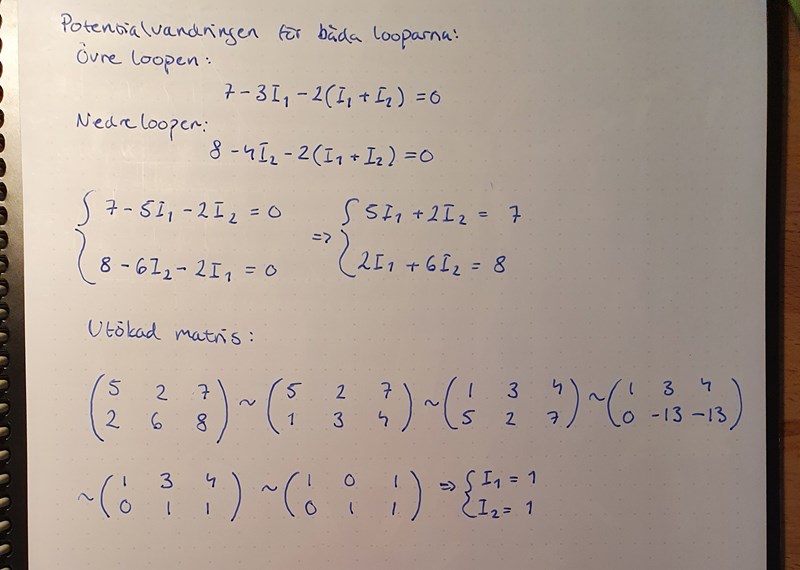 Potentialvandringen för båda looparna:
Övre loopen:
7 - 3I₁ - 2(I₁ + I₂) = 0
Nedre loopen:
8 - 4I₂ - 2(I₁ + I₂) = 0
{ 7 - 5I₁ - 2I₂ = 0 ⇒ { 5I₁ + 2I₂ = 7
8 - 6I₂ - 2I₁ = 0 2I₁ + 6I₂ = 8
Utökad matris:
(5 2 7) ~ (5 2 7) ~ (1 3 4) ~ (1 3 4)
(2 6 8) (1 3 4) (5 2 7) (0 -13 -13)
~ (1 3 4) ~ (1 0 1) ⇒ { I₁ = 1
(0 1 1) (0 1 1) I₂ = 1